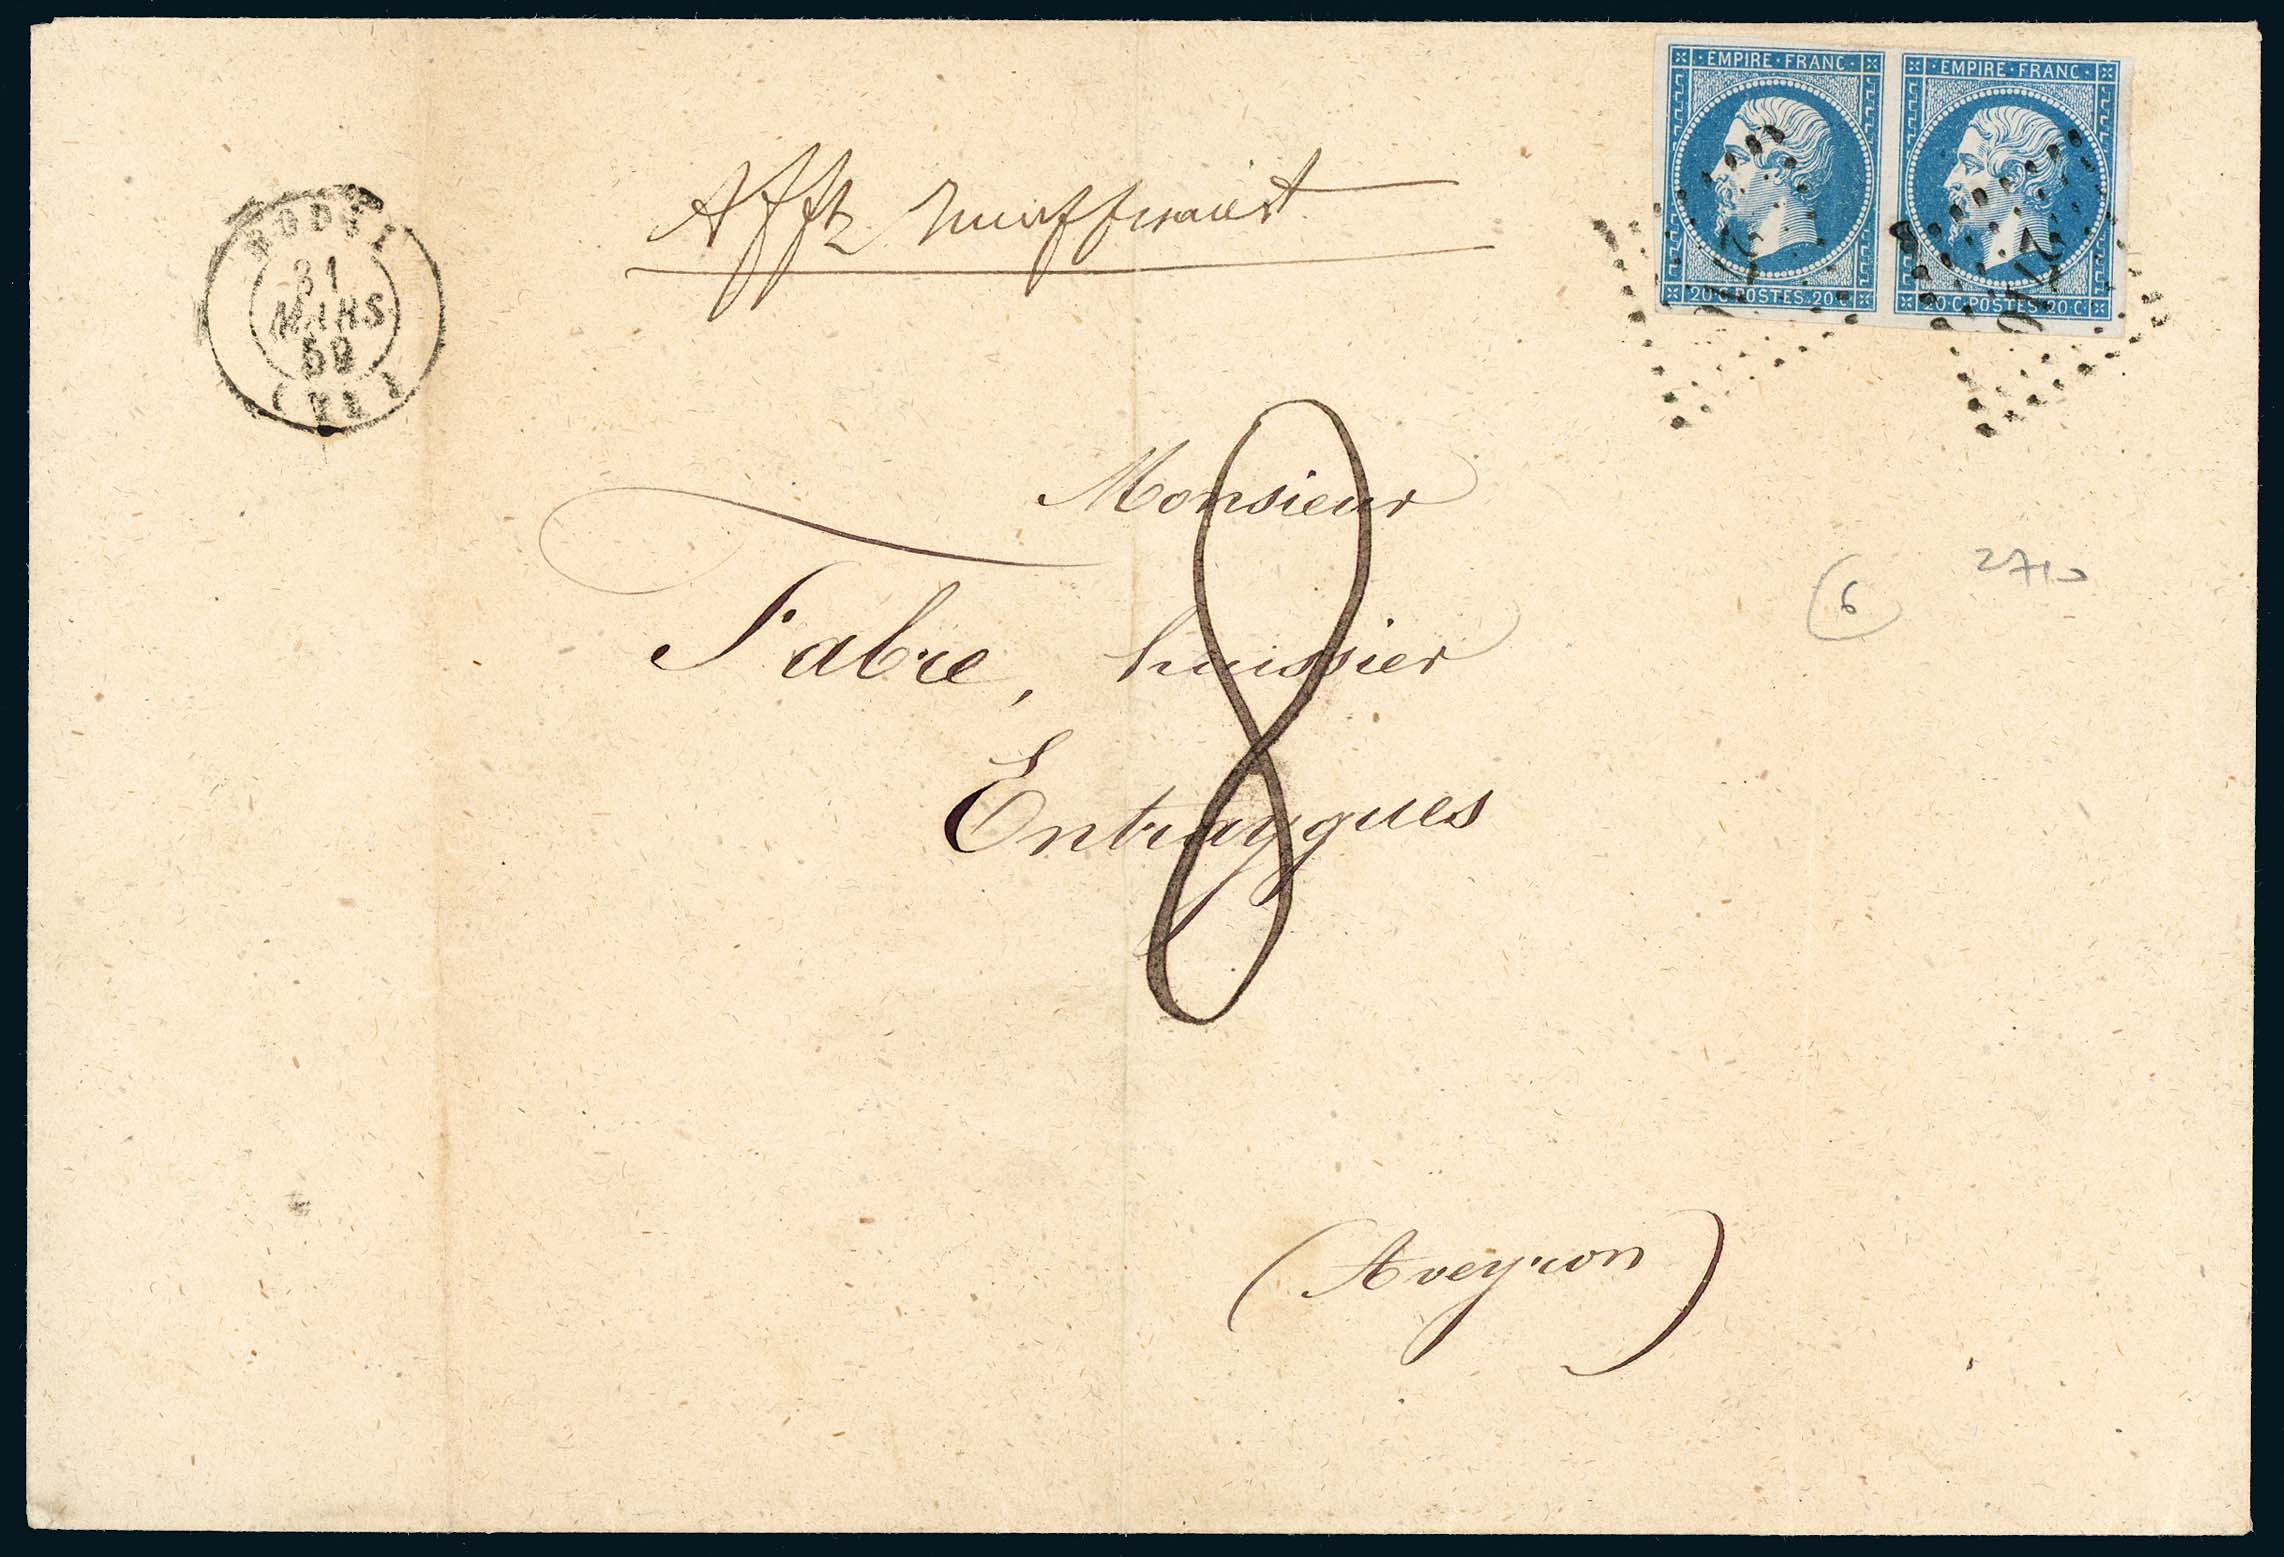 EMPIRE · FRANC · EMPIRE · FRANC ·
20 C · POSTES · 20 C · 20 C · POSTES · 20 C ·
RODEZ
31
MARS
59
Afft insuffisant
Monsieur
Fabre, huissier
Entraygues
8
6
(Aveyron)